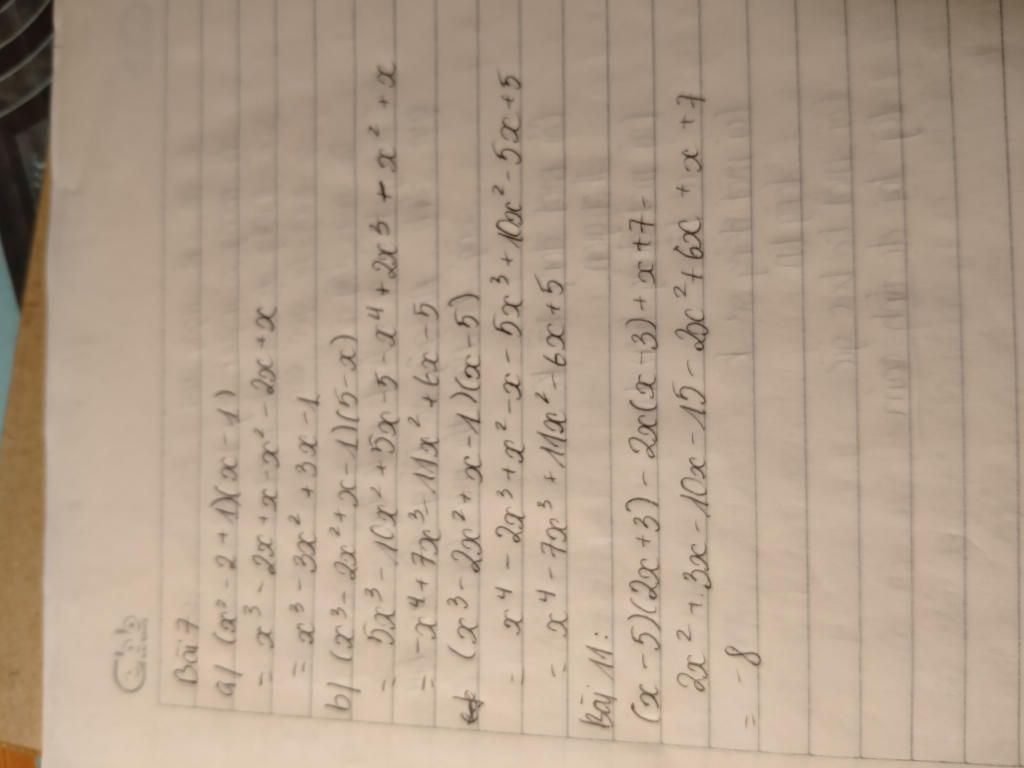 Bài 7
a) (x² - 2 + 1)(x - 1)
= x³ - 2x + x - x² - 2x + x
= x³ - 3x² + 3x - 1
b) (x³ - 2x² + x - 1)(5 - x)
= 5x³ - 10x² + 5x - 5 - x⁴ + 2x³ + x² + x
= - x⁴ + 7x³ - 11x² + 6x - 5
(x³ - 2x² + x - 1)(x - 5)
= x⁴ - 2x³ + x² - x - 5x³ + 10x² - 5x + 5
= x⁴ - 7x³ + 11x² - 6x + 5
Bài 11:
(x - 5)(2x + 3) - 2x(x - 3) + x + 7
2x² + 3x - 10x - 15 - 2x² + 6x + x + 7
= - 8